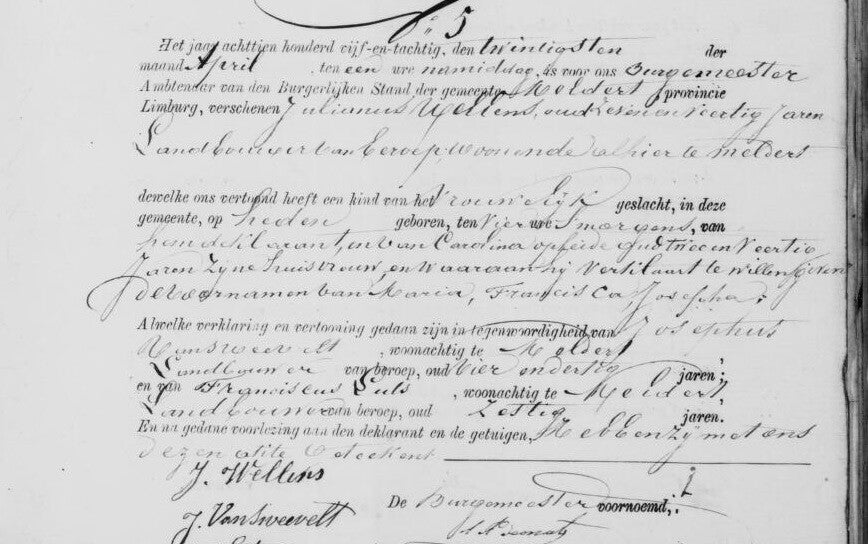 N° 5
Het jaar achttien honderd vijf-en-tachtig, den twintigsten der
maand April, ten een ure namiddag, is voor ons Burgemeester
Ambtenaar van den Burgerlijken Stand der gemeente Meldert provincie
Limburg, verschenen Julianus Wellens, oud zeven en veertig Jaren
Landbouwer van beroep woonende alhier te meldert
dewelke ons vertoond heeft een kind van het vrouwelijk geslacht, in deze
gemeente, op heden geboren, ten vier ure s'morgens, van
hem deklarant, en van Carolina oud twee en veertig
Jaren zijne huisvrouw, en waaraan hij verklaart te willen geven
de voornamen van Maria, Francisca, Josepha;
Alwelke verklaring en vertooning gedaan zijn in tegenwoordigheid van Josephus
Vansweevelt, woonachtig te Meldert,
Landbouwer van beroep, oud vier en dertig jaren;
en van Franciscus, woonachtig te Meldert,
Landbouwer van beroep, oud zestig jaren.
En na gedane voorlezing aan den deklarant en de getuigen, Hebben zij met ons
dezen akte Geteekent
J. Wellens
De Burgemeester voornoemd,
J. Vansweevelt